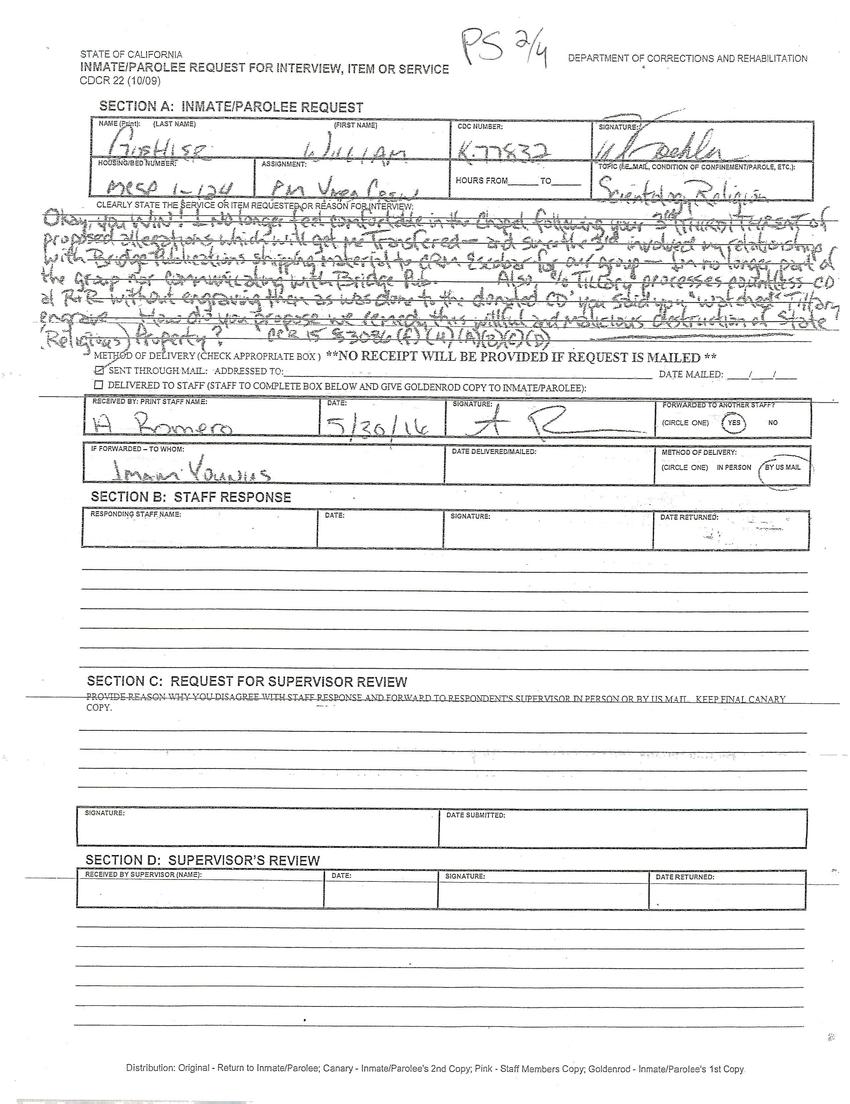 PS 2/4
STATE OF CALIFORNIA
DEPARTMENT OF CORRECTIONS AND REHABILITATION
INMATE/PAROLEE REQUEST FOR INTERVIEW, ITEM OR SERVICE
CDCR 22 (10/09)
SECTION A: INMATE/PAROLEE REQUEST
NAME (Print): (LAST NAME) (FIRST NAME) CDC NUMBER: SIGNATURE:
WILLIAM K-77832
HOUSING/BED NUMBER: ASSIGNMENT: HOURS FROM______ TO______ TOPIC (I.E. MAIL, CONDITION OF CONFINEMENT/PAROLE, ETC.):
MCSP 1-124 PM Yard Crew Scientology Religion
CLEARLY STATE THE SERVICE OR ITEM REQUESTED OR REASON FOR INTERVIEW:
Okay, you WIN! I no longer feel comfortable in the Chapel following your 3rd (third) THREAT of
proposed allegations which will get me Transferred — and since the 3rd involved my relationships
with Bridge Publications shipping material to CRM Escobar for our group — I'm no longer part of
the Group nor communicating with Bridge Pub. Also, % Tillory processes countless CD
at R&R without engraving them as was done to the donated CD' you said you "watched" Tillory
engrave. How did you propose we remedy this willful and malicious destruction of State
(Religious) Property? CCR 15 §3086 (f)(4)(A)(B)(C)(D)
METHOD OF DELIVERY (CHECK APPROPRIATE BOX) **NO RECEIPT WILL BE PROVIDED IF REQUEST IS MAILED **
SENT THROUGH MAIL: ADDRESSED TO: DATE MAILED: ___/___/___
DELIVERED TO STAFF (STAFF TO COMPLETE BOX BELOW AND GIVE GOLDENROD COPY TO INMATE/PAROLEE):
RECEIVED BY: PRINT STAFF NAME: DATE: SIGNATURE: FORWARDED TO ANOTHER STAFF?
A Romero 5/30/16 A R (CIRCLE ONE) YES NO
IF FORWARDED – TO WHOM: DATE DELIVERED/MAILED: METHOD OF DELIVERY:
Imam Younus (CIRCLE ONE) IN PERSON BY US MAIL
SECTION B: STAFF RESPONSE
RESPONDING STAFF NAME: DATE: SIGNATURE: DATE RETURNED:
SECTION C: REQUEST FOR SUPERVISOR REVIEW
PROVIDE REASON WHY YOU DISAGREE WITH STAFF RESPONSE AND FORWARD TO RESPONDENT'S SUPERVISOR IN PERSON OR BY US MAIL. KEEP FINAL CANARY
COPY.
SIGNATURE: DATE SUBMITTED:
SECTION D: SUPERVISOR'S REVIEW
RECEIVED BY SUPERVISOR (NAME): DATE: SIGNATURE: DATE RETURNED:
Distribution: Original - Return to Inmate/Parolee; Canary - Inmate/Parolee's 2nd Copy; Pink - Staff Members Copy; Goldenrod - Inmate/Parolee's 1st Copy.